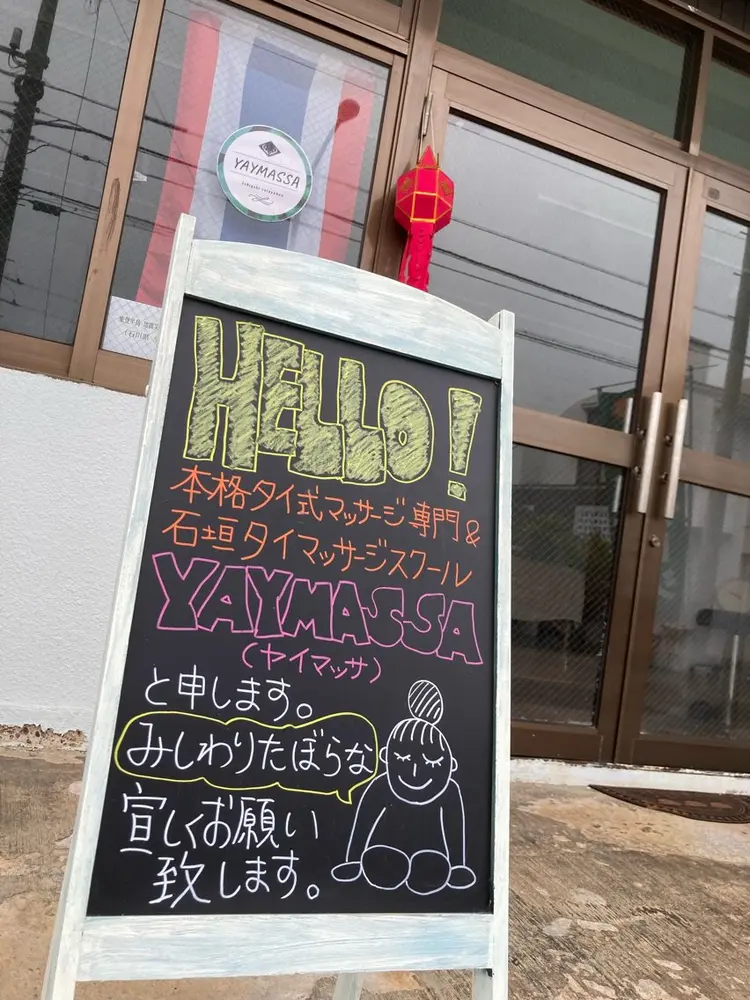 YAYMASSA
HELLO!
本格タイ式マッサージ専門&
石垣タイマッサージスクール
YAYMASSA
(ヤイマッサ)
と申します。
みしわりたぼらな
宜しくお願い
致します。